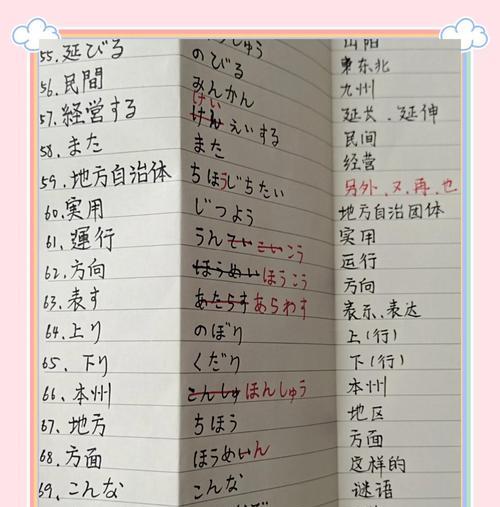 55.延びる
56.民間
57.経営する
58.また
59.地方自治体
60.実用
61.運行
62.方向
63.表す
64.上り
65.下り
66.本州
67.地方
68.方面
69.こんな
しゅう
のびる
みんかん
けい
けんえいする
また
ちほうじちたい
じつよう
うんてぃこいこう
ほうめいほうこう
あたらすあらわす
のぼり
くだり
こんしゅほんしゅう
ちほう
ほうめいん
こんな
山阳
东北
九州
延长、延伸
民间
经营
另外、又、再、也
地方自治团体
实用
运行
方向
表示、表达
上(行)
下(行)
本州
地区
方面
这样的
谜语